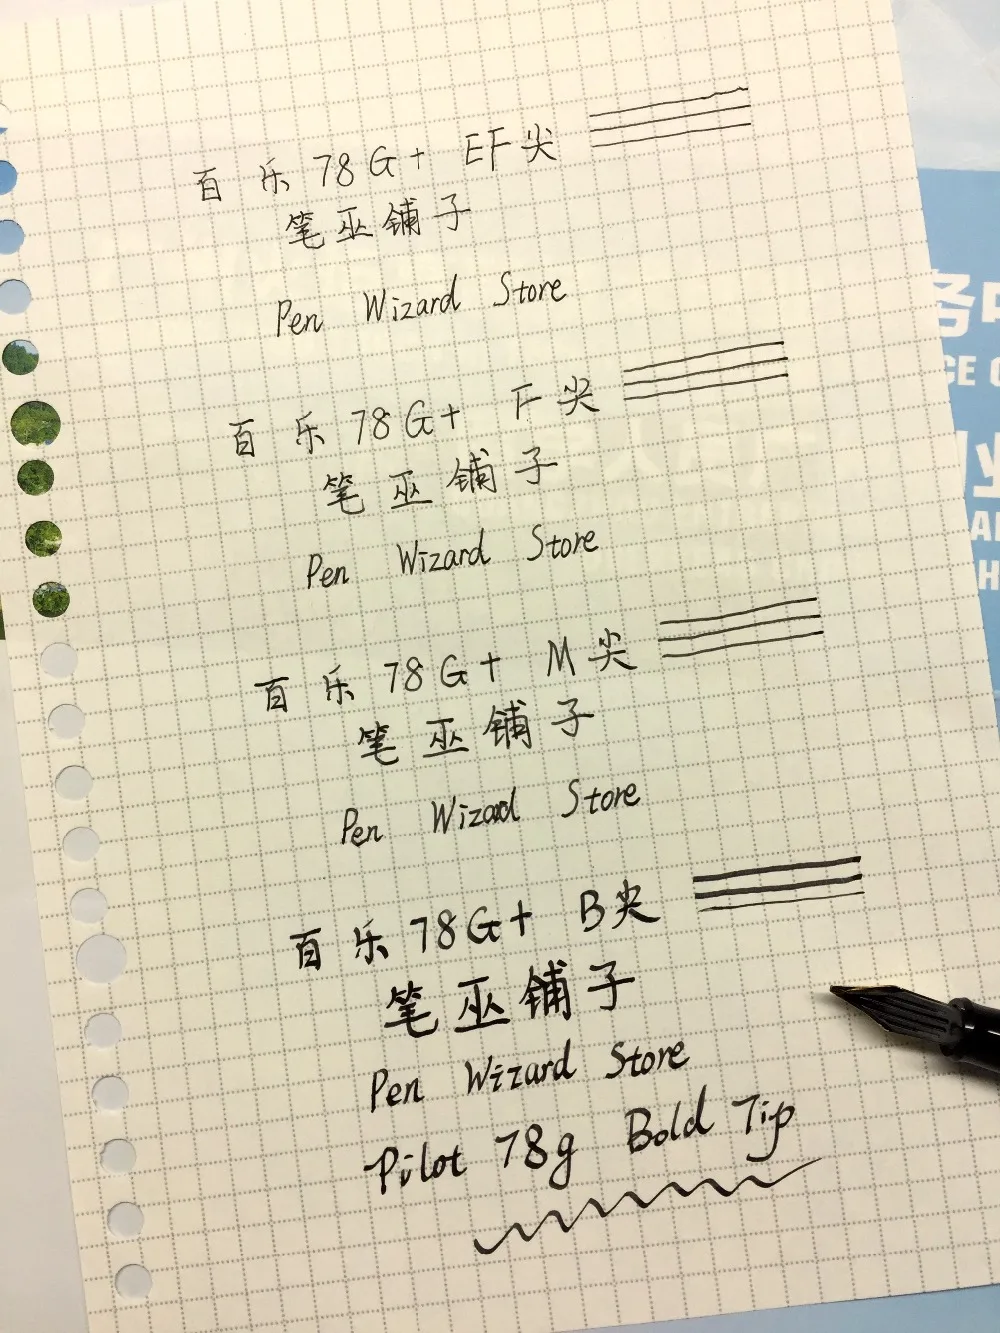 百乐78G+ EF尖
笔巫铺子
Pen Wizard Store
百乐78G+ F尖
笔巫铺子
Pen Wizard Store
百乐78G+ M尖
笔巫铺子
Pen Wizard Store
百乐78G+ B尖
笔巫铺子
Pen Wizard Store
Pilot 78g Bold Tip